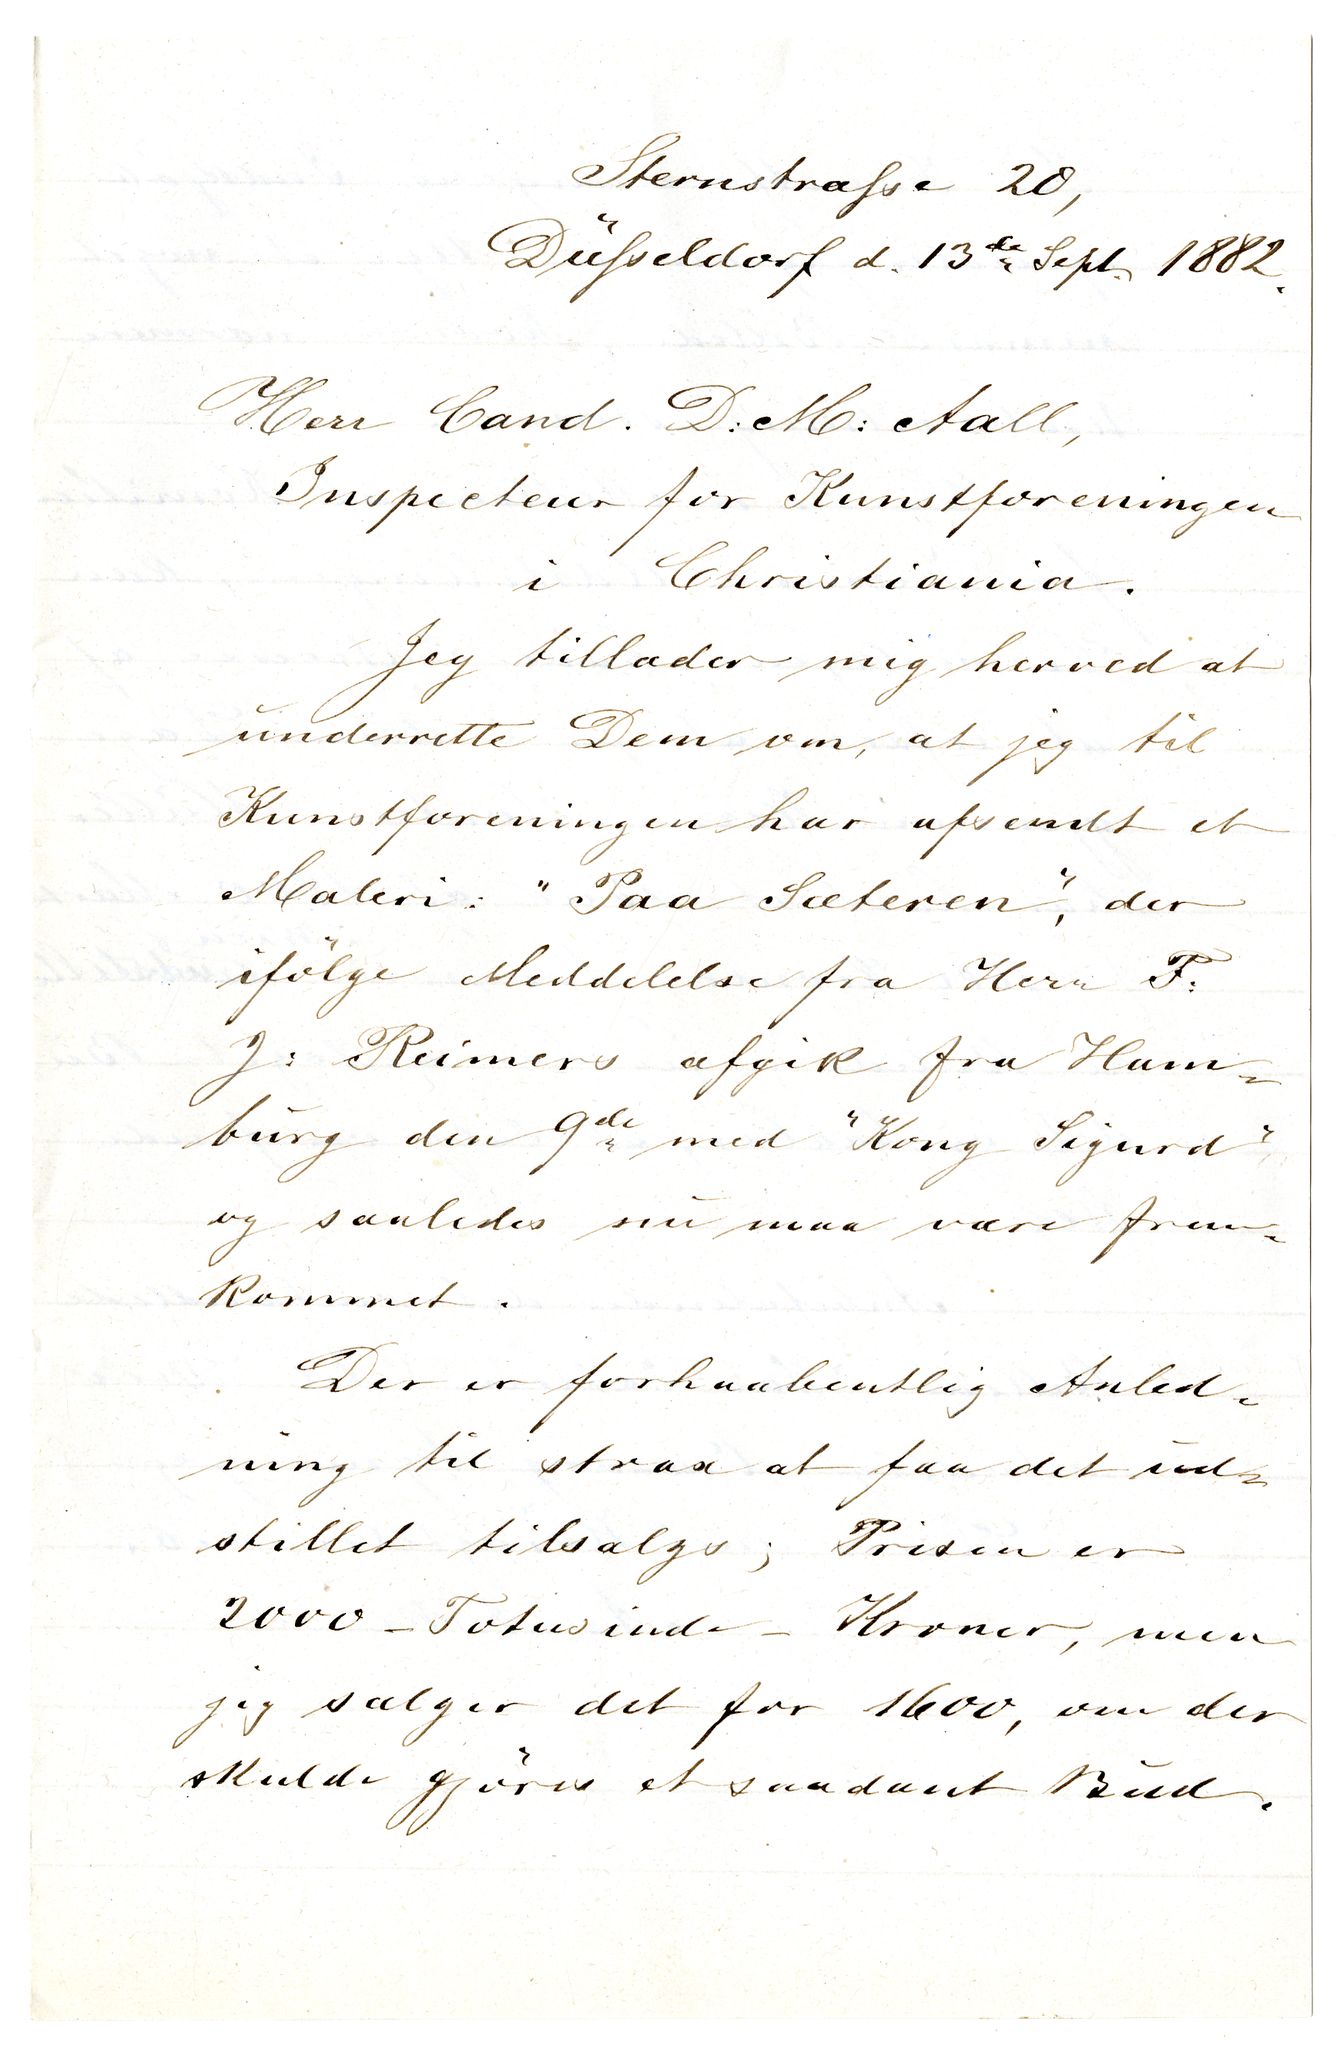 Sternstrasse 20,
Düsseldorf d. 13de Sept. 1882.
Herr Cand. D: M: Aall,
Inspecteur for Kunstforeningen
i Christiania.
Jeg tillader mig herved at
underrette Dem om, at jeg til
Kunstforeningen har afsendt et
Maleri: "Paa Sæteren", der
ifölge Meddelelse fra Herr F:
J: Reimers afgik fra Ham-
burg den 9de med "Kong Sigurd"
og saaledes nu maa være frem-
kommet.
Der er forhaabentlig Anled-
ning til strax at faa det ud-
stillet tilsalgs; Prisen er
2000 - Totusinde - Kroner, men
jeg sælger det for 1600, om der
skulde gjöres et saadant Bud.